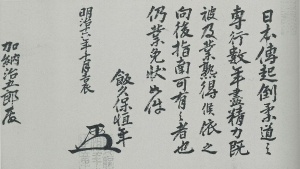 日本傳起倒柔道ニ
専行数年盡精力既
被及業熟得候依之
向後指南可有之者也
仍業免状如件
飯久保恒年
明治十六年十月吉辰
加納治五郎殿